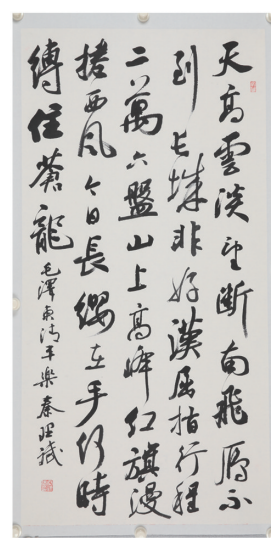 天高雲淡望斷南飛雁不
到長城非好漢屈指行程
二萬六盤山上高峰紅旗漫
捲西風今日長纓在手何時
縛住蒼龍
毛澤東清平樂 秦